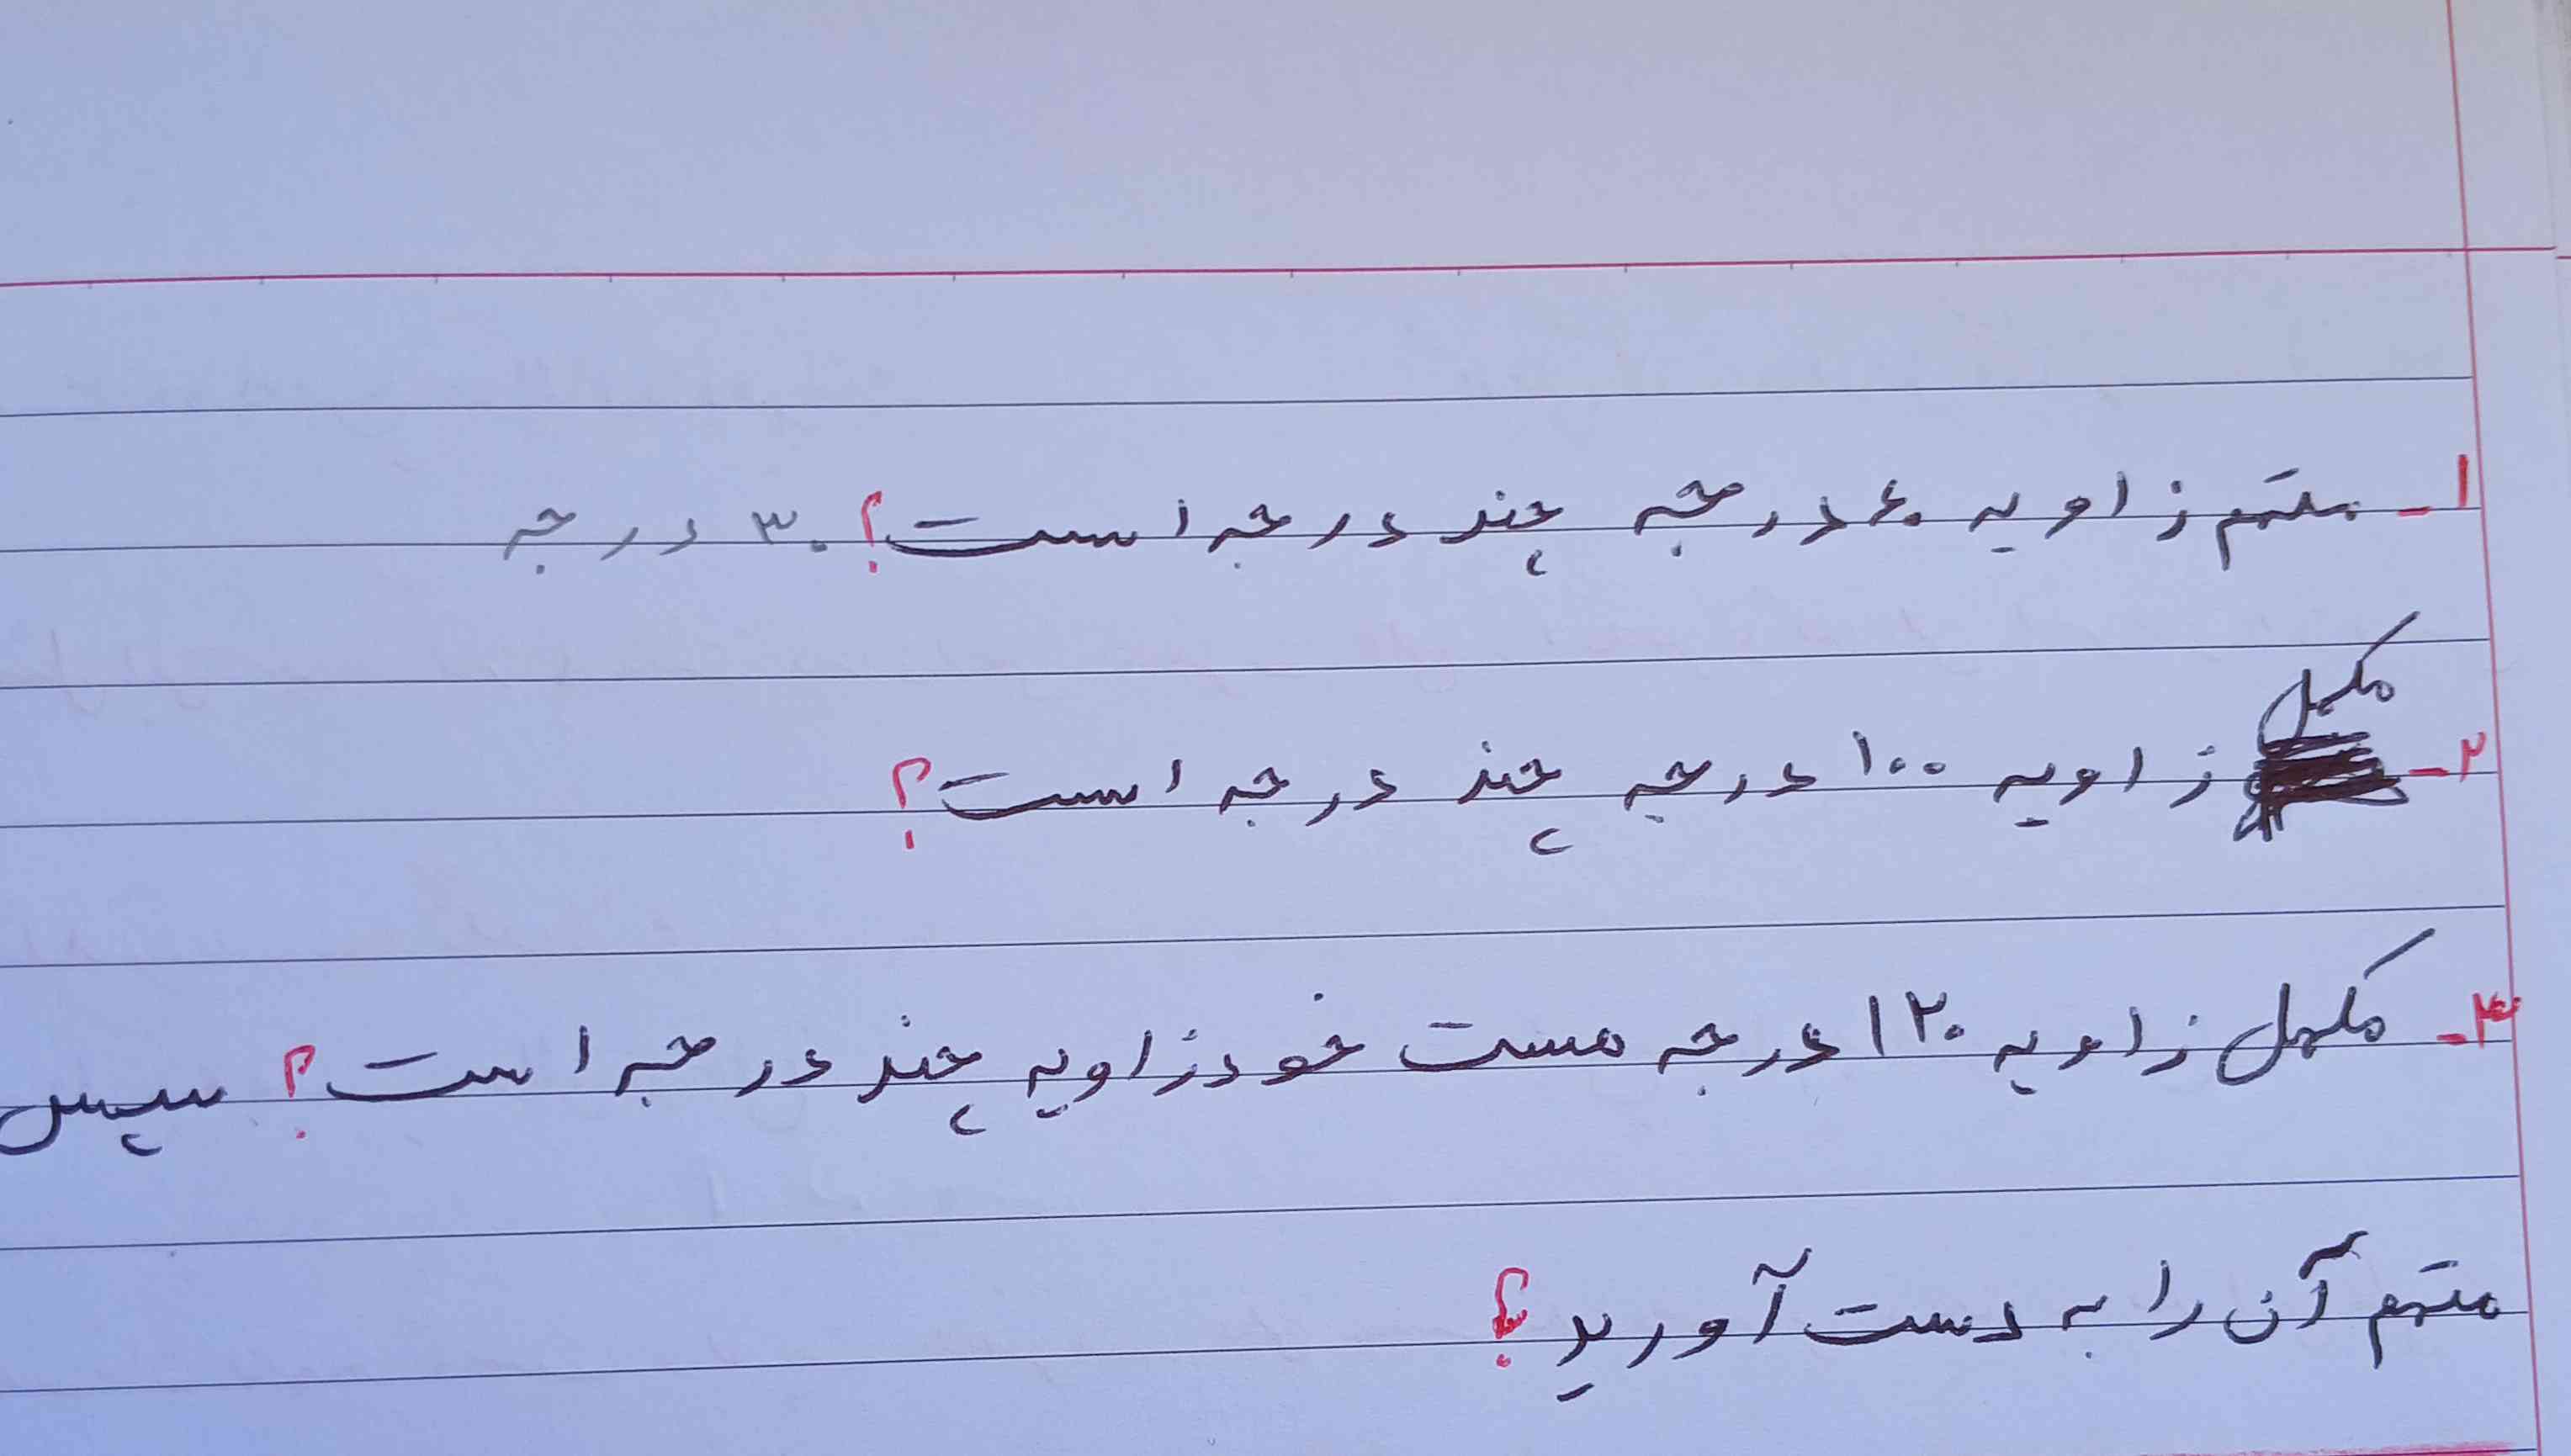 ۱- متمم زاویه ۶۰ درجه چند درجه است؟ ۳۰ درجه
مکمل
۲- زاویه ۱۰۰ درجه چند درجه است؟
۳- مکمل زاویه ۱۲۰ درجه هست خود زاویه چند درجه است؟ سپس
متمم آن را به دست آورید؟